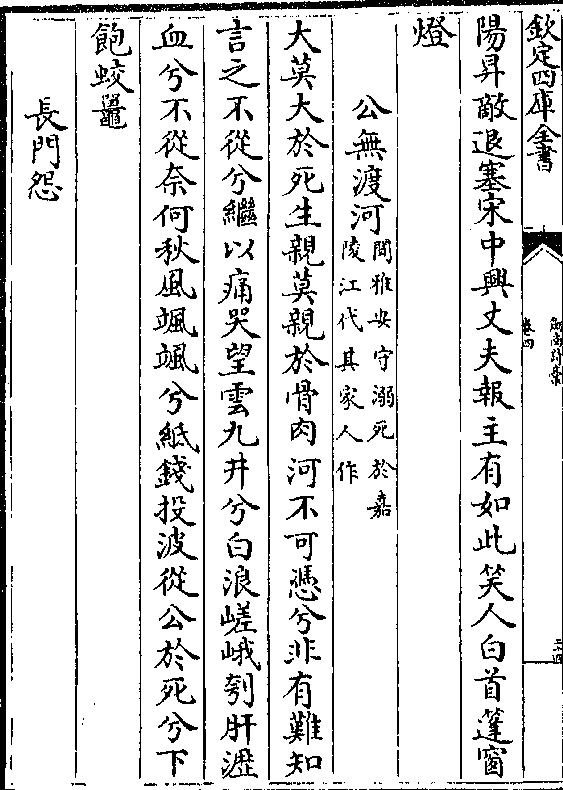 欽定四庫全書
劍南詩稾
卷四
三四
陽昇敵退塞宋中興丈夫報主有如此笑人白首蓬窗
燈
公無渡河聞雅安守溺死於嘉
陵江代其家人作
大莫大於死生親莫親於骨肉河不可憑兮非有難知
言之不從兮繼以痛哭望雲九井兮白浪嵯峨刳肝瀝
血兮不從奈何秋風颯颯兮紙錢投波從公於死兮下
飽蛟鼉
長門怨